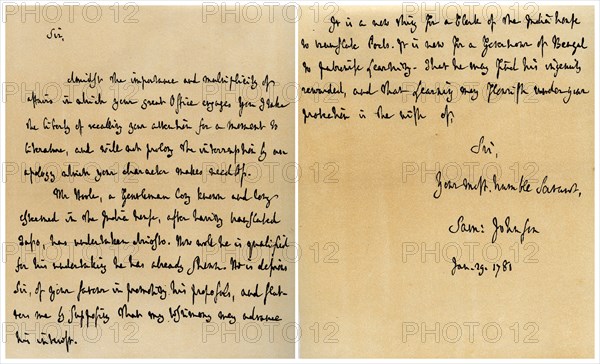 Sir,
Amidst the importance and multiplicity of
affairs in which your great Office engages you I take
the liberty of recalling your attention for a moment to
literature, and will not prolong the interruption by an
apology which your character makes needless.
Mr Hoole, a Gentleman long known and long
esteemed in the India house, after having translated
Tasso, has undertaken Ariosto. How well he is qualified
for his undertaking he has already shewn. He is desirous
Sir, of your favour in promoting his proposals, and flat-
ters me by supposing that my testimony may advance
his interest.
It is a new thing for a Clerk of the India house
to translate Poets. It is new for a Governour of Bengal
to patronise learning. That he may find his ingenuity
rewarded, and that learning may flourish under your
protection is the wish of,
Sir,
Your most humble Servant,
Sam: Johnson
Jan. 29. 1781
PHOTO 12